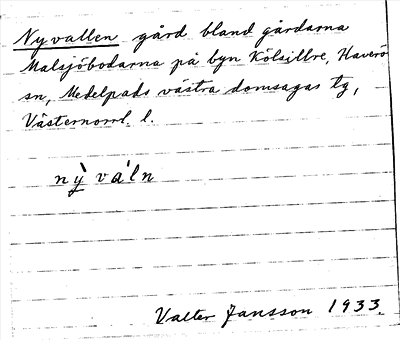 Nyvallen gård bland gårdarna
Malsjöbodarna på byn Kölsillre, Haverö
sn, Medelpads västra domsagas tg,
Västernorrl. l.
nỳ váln
Valter Jansson 1933.